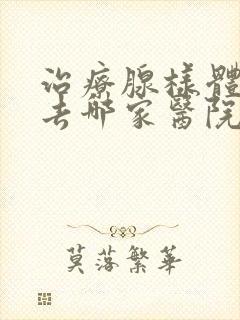 治療腺樣體
去哪家醫院
莫落繁華